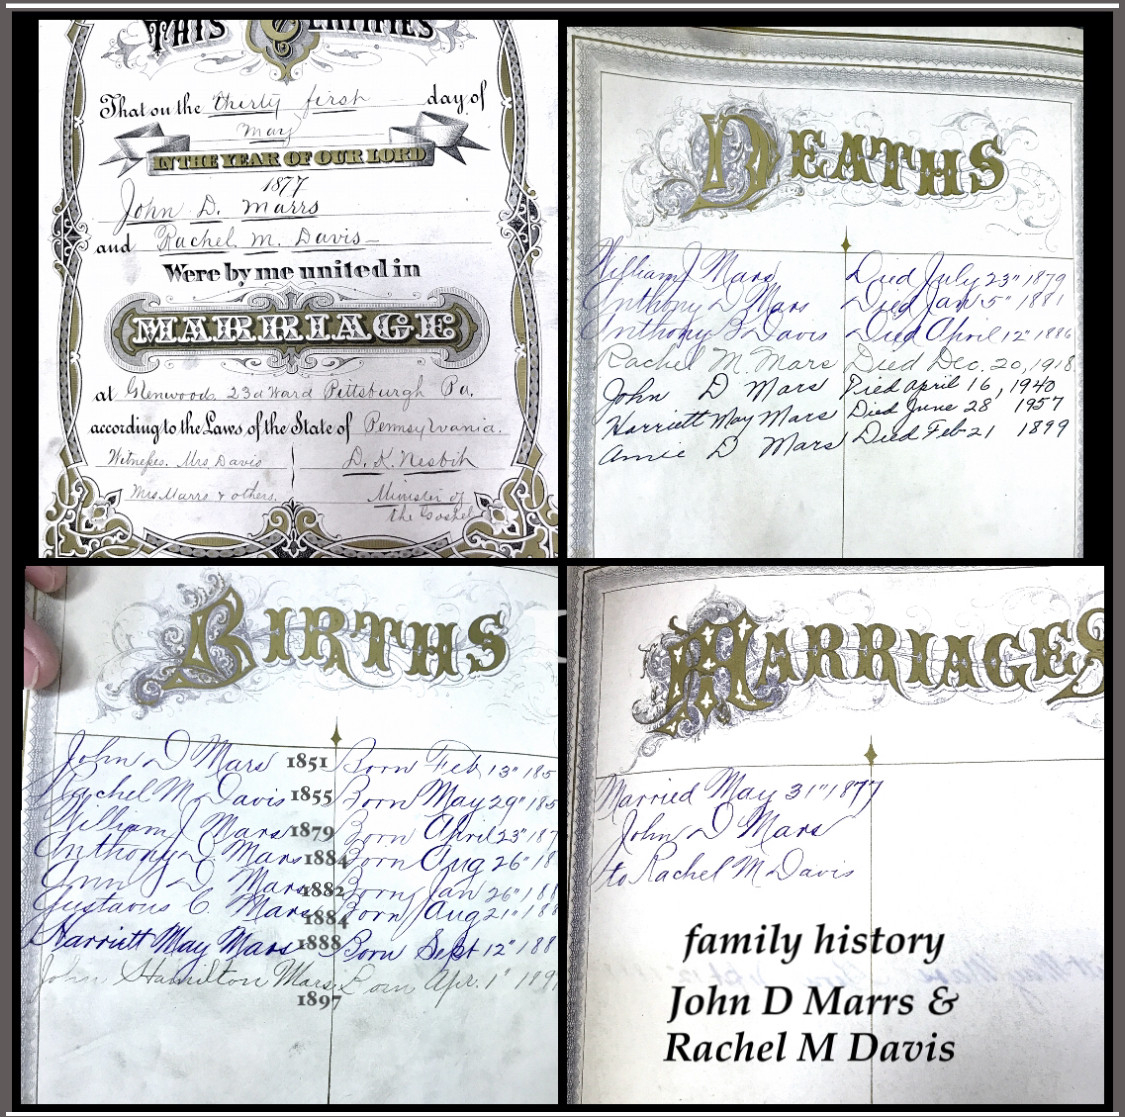 THIS CERTIFIES
That on the thirty first day of
May
IN THE YEAR OF OUR LORD
1877
John D. Marrs
and Rachel M. Davis
Were by me united in
MARRIAGE
at Glenwood 23d Ward Pittsburgh Pa.
according to the Laws of the State of Pennsylvania.
Witnesses. Mrs Davis D. K. Nesbit
Mrs Marrs & others. Minister of
the Gospel
DEATHS
William J Mars Died July 23" 1879
Anthony D Mars Died Jan 5" 1881
Anthony B Davis Died April 12" 1886
Rachel M. Mars Died Dec. 20, 1918
John D Mars Died April 16, 1940
Harriett May Mars Died June 28 1957
Annie D Mars Died Feb 21 1899
BIRTHS
John D Mars 1851 Born Feb 13" 185
Rachel M Davis 1855 Born May 29" 185
William J Mars 1879 Born April 23" 187
Anthony D. Mars 1884 Born Aug 26" 18
D Mars 1882 Born Jan 26" 188
Gustavus C. Mars 1884 Born Aug 21" 188
Harriett May Mars 1888 Born Sept 12" 188
John Hamilton Mars Born Apr. 1" 189
1897
MARRIAGES
Married May 31" 1877
John D Mars
to Rachel M Davis
family history
John D Marrs &
Rachel M Davis